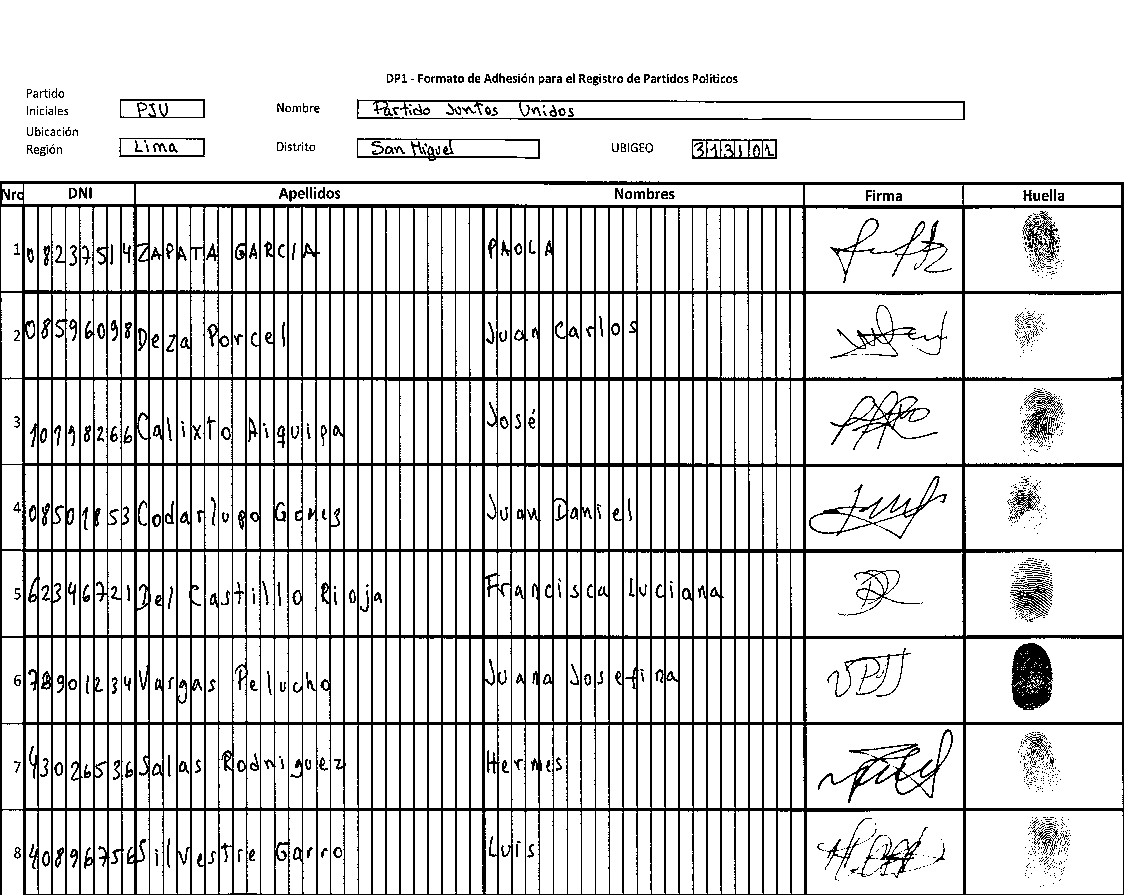 DP1 - Formato de Adhesión para el Registro de Partidos Políticos
Partido
Iniciales PJU Nombre Partido Juntos Unidos
Ubicación
Región Lima Distrito San Miguel UBIGEO
Nro DNI Apellidos Nombres Firma Huella
1 08237514 ZAPATA GARCIA PAOLA
2 08596098 Deza Porcel Juan Carlos
3 10798266 Calixto Aiquipa José
4 08501853 Codarlupo Juan Daniel
5 62346721 Del Castilllo Rioja Francisca Luciana
6 78901234 Vargas Pelucho Juana Josefina
7 43026536 Salas Rodriguez Hermes
8 40896756 Silvestre Garro Luis